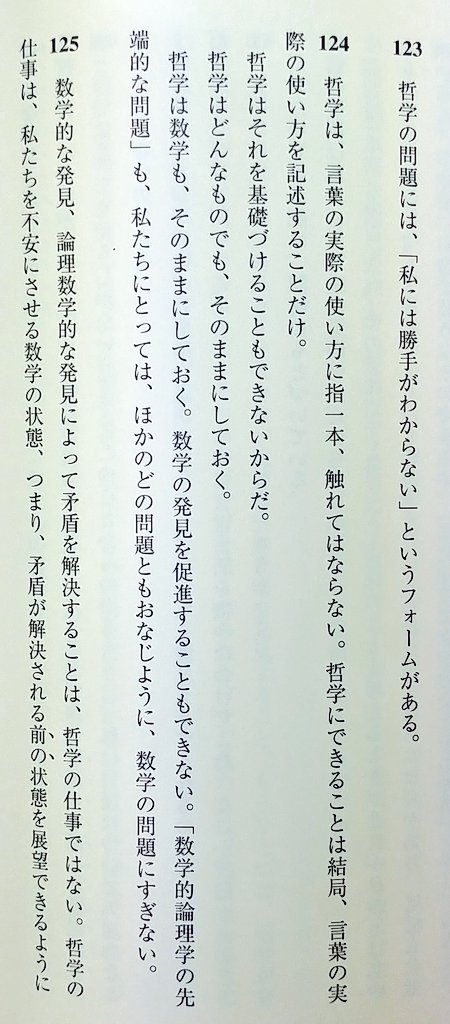 123 哲学の問題には、「私には勝手がわからない」というフォームがある。
124 哲学は、言葉の実際の使い方に指一本、触れてはならない。哲学にできることは結局、言葉の実
際の使い方を記述することだけ。
哲学はそれを基礎づけることもできないからだ。
哲学はどんなものでも、そのままにしておく。
哲学は数学も、そのままにしておく。数学の発見を促進することもできない。「数学的論理学の先
端的な問題」も、私たちにとっては、ほかのどの問題ともおなじように、数学の問題にすぎない。
125 数学的な発見、論理数学的な発見によって矛盾を解決することは、哲学の仕事ではない。哲学の
仕事は、私たちを不安にさせる数学の状態、つまり、矛盾が解決される前の状態を展望できるように